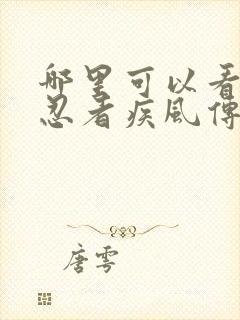 哪里可以看
忍者疾風傳
唐雩